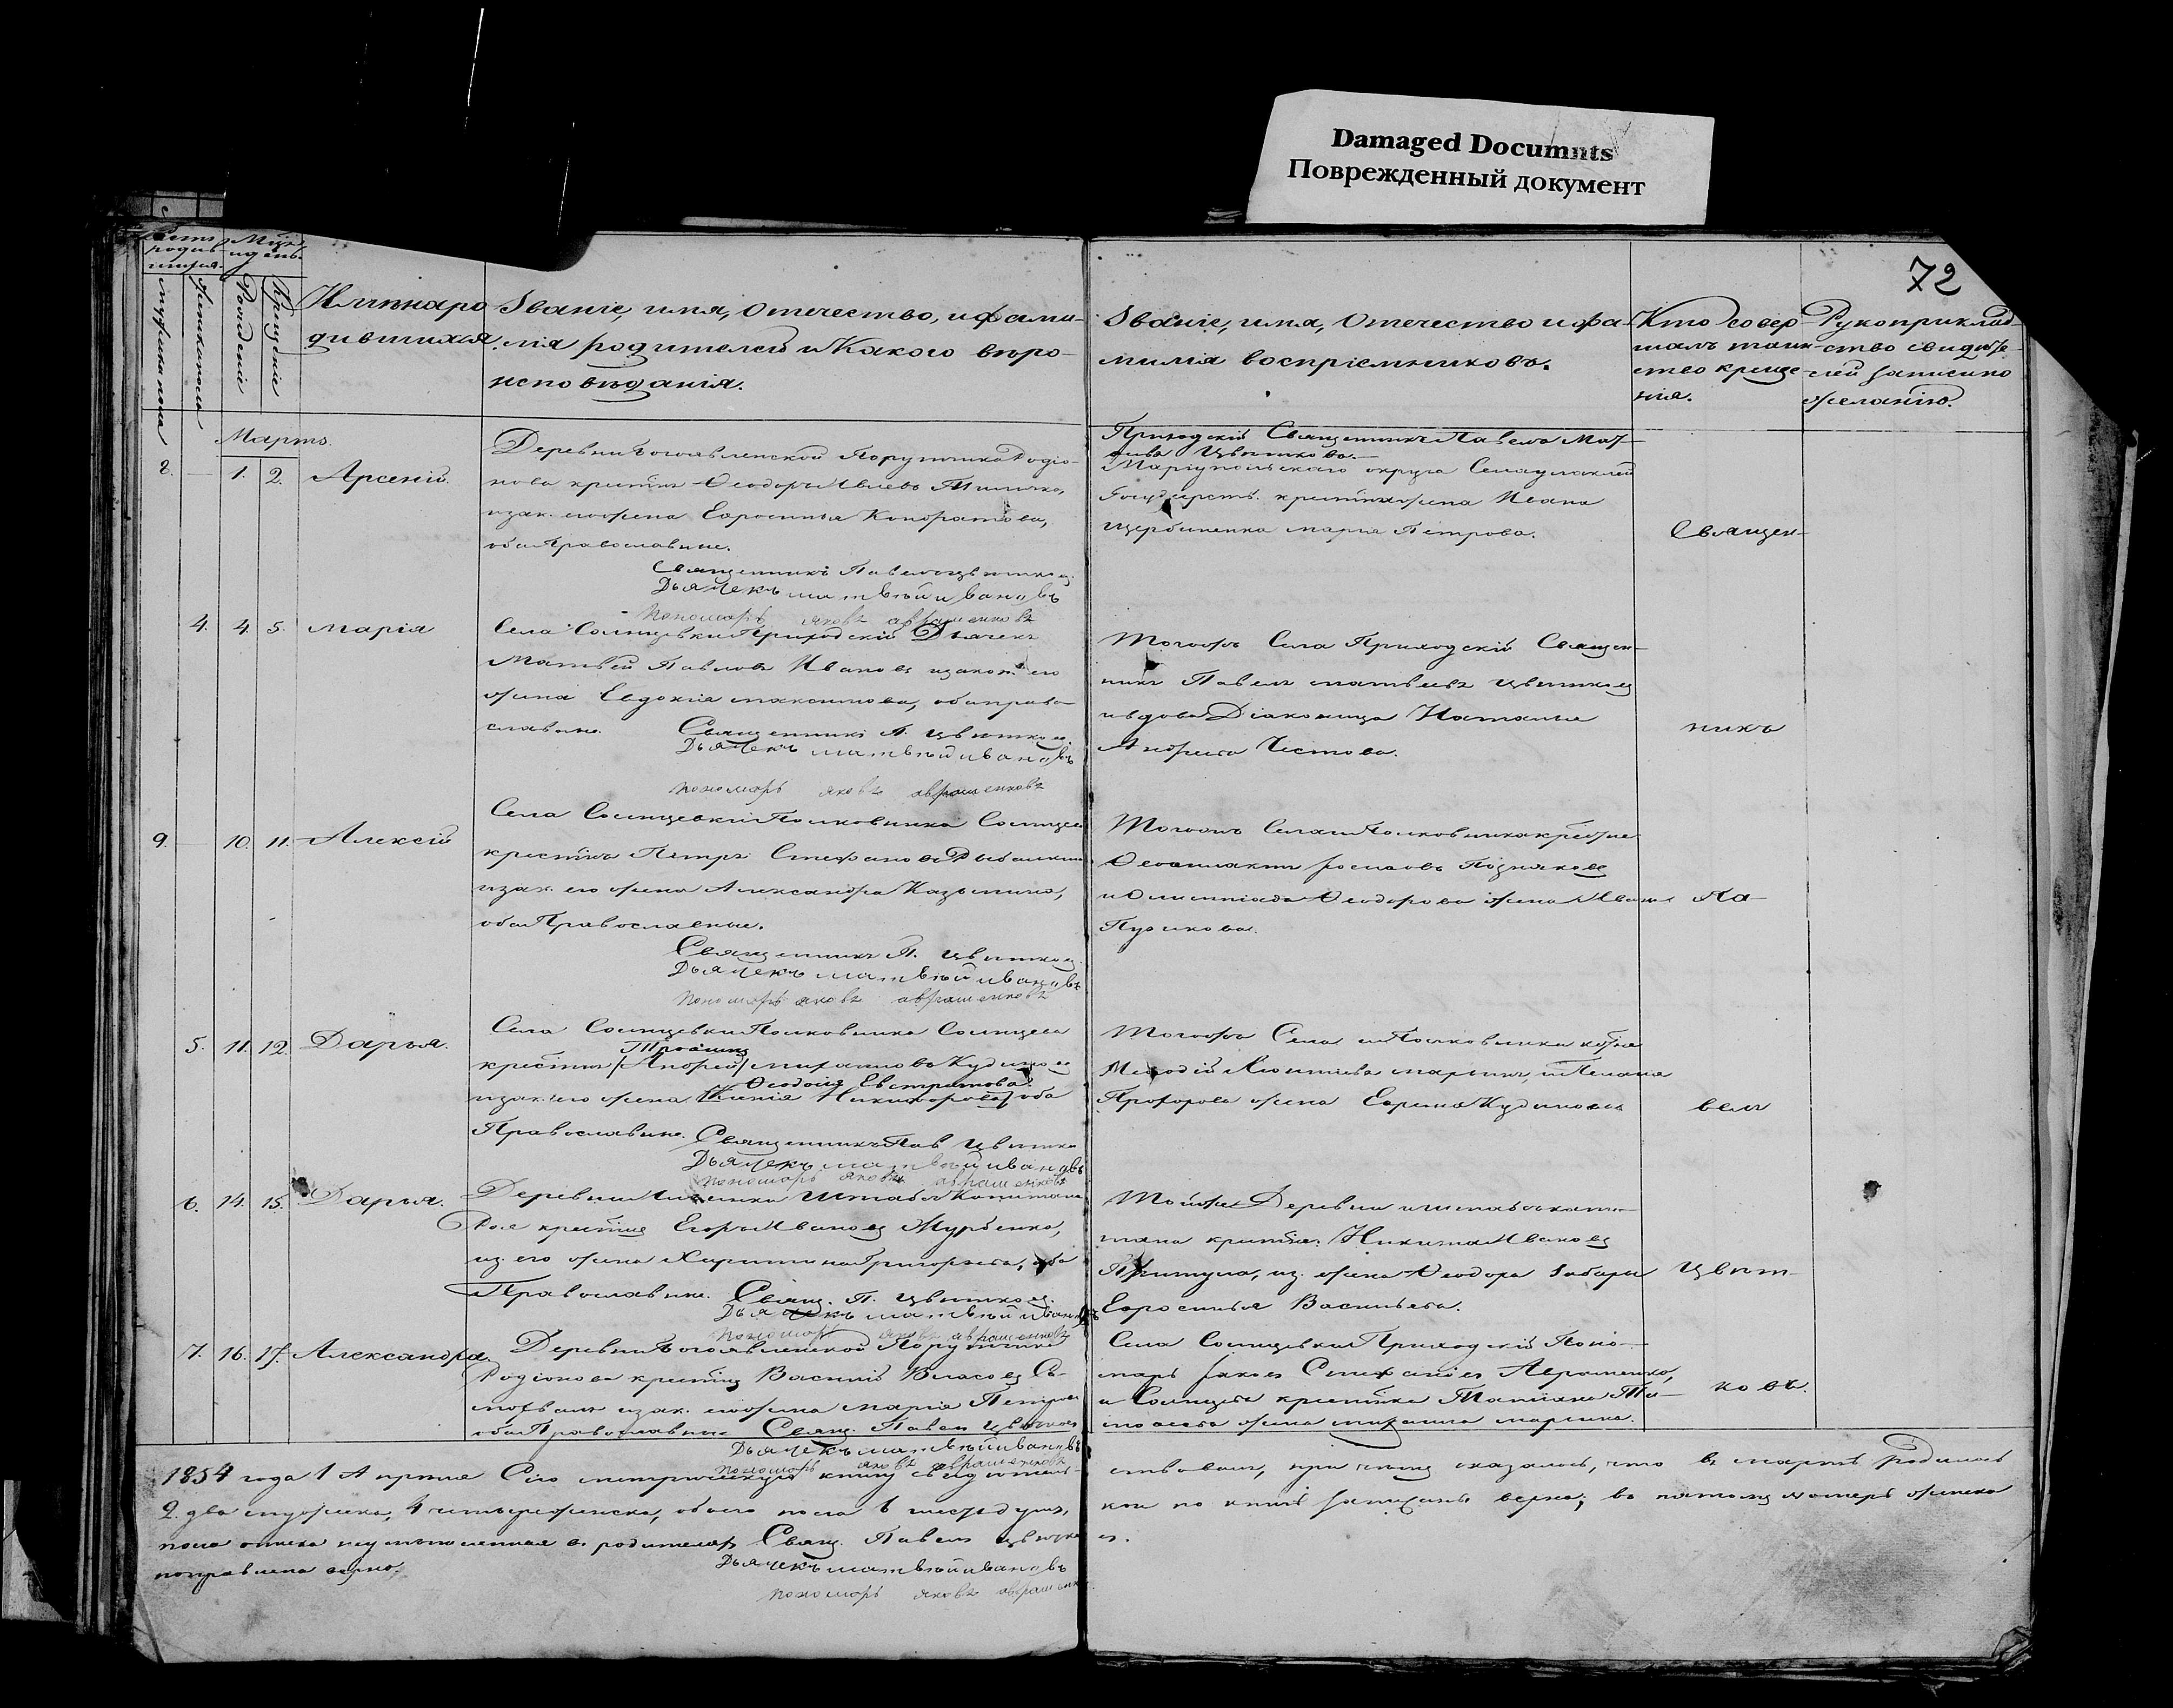 Damaged Documents
Поврежденный документ
72
Счетъ родив-шихся.
Мѣс. и день.
мужеска пола
женска пола
Рожденіе
Крещеніе
Имена родившихся.
Званіе, имя, отечество, и фами-
лія родителей и какого вѣро-
исповѣданія.
Званіе, имя, отечество и фа-
милія воспріемниковъ.
Кто совер-
шалъ таин-
ство креще-
нія.
Рукоприклад-
ство свидѣте-
лей записи по
желанію.
Мартъ.
8. 1. 2. Арсеній.
Деревни Богоявленской Порутчика Родіо-
нова крестнъ Ѳеодоръ
и зак. его жена Евросинья Кондратова,
оба Православные.
Священникъ Павелъ Цвѣтковъ
Дьячекъ матвѣй ивановъ
пономарь яковъ авраменковъ
Приходскій Священникъ Павелъ Мат-
Цвѣтковъ.
Маріупольскаго округа Села
Государств. жена Ивана
Щербиненка марія Петрова.
Священ-
4. 4. 5. Марія
Села Солнцевки Приходскій Дьячекъ
Матвей Павловъ Ивановъ и закон его
жена Евдокія максимова, оба право-
славные.
Священникъ П. Цвѣтковъ
Дьячекъ матвѣй ивановъ
пономарь яковъ авраменковъ
Тогожъ Села Приходскій Священ-
никъ Павелъ матвѣевъ Цвѣтковъ
и вдова Діаконица Наталья
Андреева Чистова.
никъ
9. 10. 11. Алексій
Села Солнцевки Полковника Солнцева
крестнъ Петръ Стефановъ
и зак. его жена Александра Казьмина,
оба Православные.
Священникъ П. Цвѣтковъ
Дьячекъ матвѣй ивановъ
пономарь яковъ авраменковъ
Тогожъ Села и Полковника
Позняковъ
и Олимпіада Ѳеодорова жена Ивана
Пузикова.
Па-
5. 11. 12. Дарья.
Села Солнцевки Полковника Солнцева
Трофимъ
крестнъ /Андрей/ михаиловъ
Ѳеодосія Евстратова
и зак. его жена Никифорова оба
Православные. Священникъ Пав Цвѣтко
Дьячекъ матвѣй ивановъ
пономарь яковъ авраменковъ
Тогожъ Села и Полковника
Меѳодій и Пелагія
Прохорова жена Кудинова
велъ
6. 14. 15. Дарья.
Деревни Штабсъ Капитана
крестнъ Егоръ Ивановъ
из его жена Харитина Григорьева, оба
Православные. Свящ. П. Цвѣтковъ
Дьячекъ матвѣй ивановъ
пономарь яковъ авраменковъ
Той же Деревни и штабсъ капи-
тана Никита Ивановъ
Притула, из. жена Ѳеодора
Евросинья Васильева.
Цвѣт-
7. 16. 17. Александра.
Деревни Богоявленской Порутчика
Родіонова Василій Власовъ
и зак. его жена марія Петрова
оба Православные Свящ. Павелъ Цвѣтковъ
Дьячекъ матвѣй ивановъ
пономарь яковъ авраменковъ
Села Солнцевки Приходскій Поно-
марь Іаковъ Стефановъ Авраменко,
и Солнцева крестнка Татіана
жена михаила марчика.
ковъ.
1854 года 1 Апрѣля Сію метрическую книгу свидѣтель-
ствовали, при чемъ оказалось, что въ мартѣ родилось
2. два мужеска, 4 четыре женска, обоего пола 6 шесть душъ,
кои по книгѣ записаны верно; въ пятомъ номерѣ женска
пола въ родителяхъ Свящ. Павелъ Цвѣтковъ
поправлена верно.
Дьячекъ матвѣй ивановъ
пономарь яковъ авраменковъ